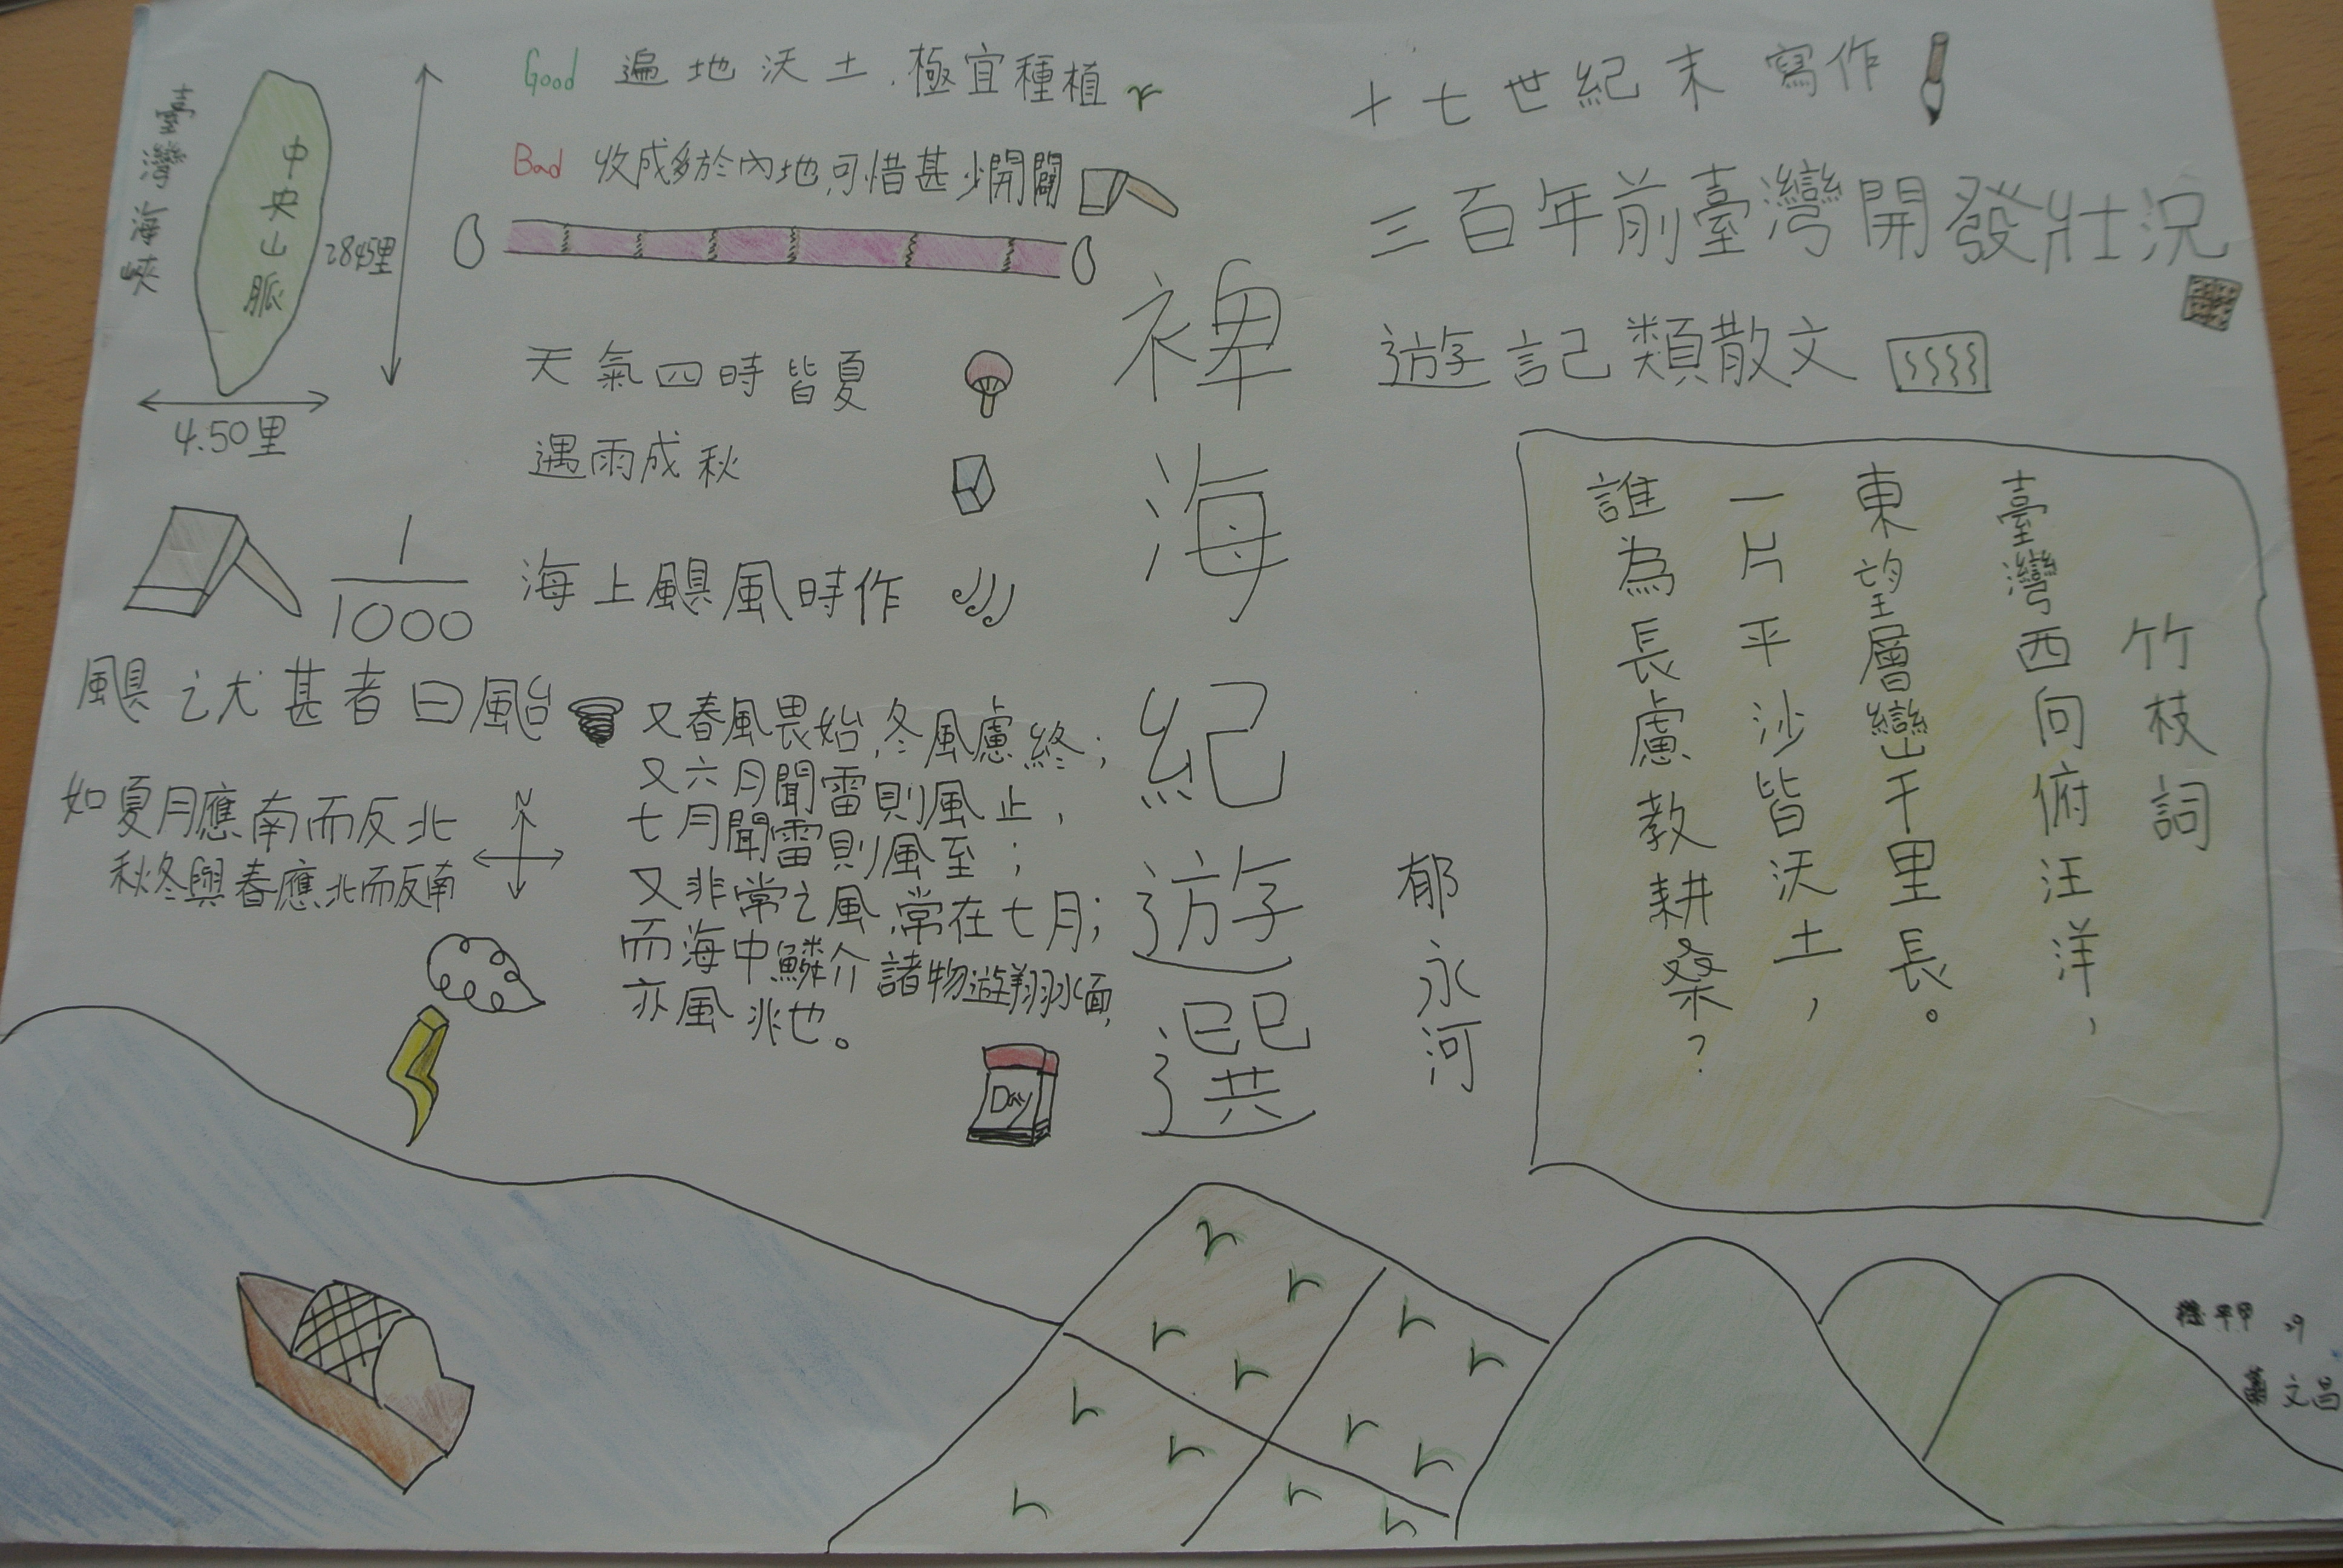 臺灣海峽
中央山脈
2845里
4.50里
1
1000
Good 遍地沃土,極宜種植
Bad 收成多於內地,可惜甚少開闢
天氣四時皆夏
遇雨成秋
海上颶風時作
颶之尤甚者曰颱
如夏月應南而反北
秋冬與春應北而反南
N
又春風畏始,冬風慮終;
又六月聞雷則風止,
七月聞雷則風至;
又非常之風,常在七月;
而海中鱗介諸物遊翔水面,
亦風兆也。
Day
裨海紀遊選
郁永河
十七世紀末寫作
三百年前臺灣開發壯況
遊記類散文
竹枝詞
臺灣西向俯汪洋,
東望層巒千里長。
一片平沙皆沃土,
誰為長慮教耕桑?
29
文昌